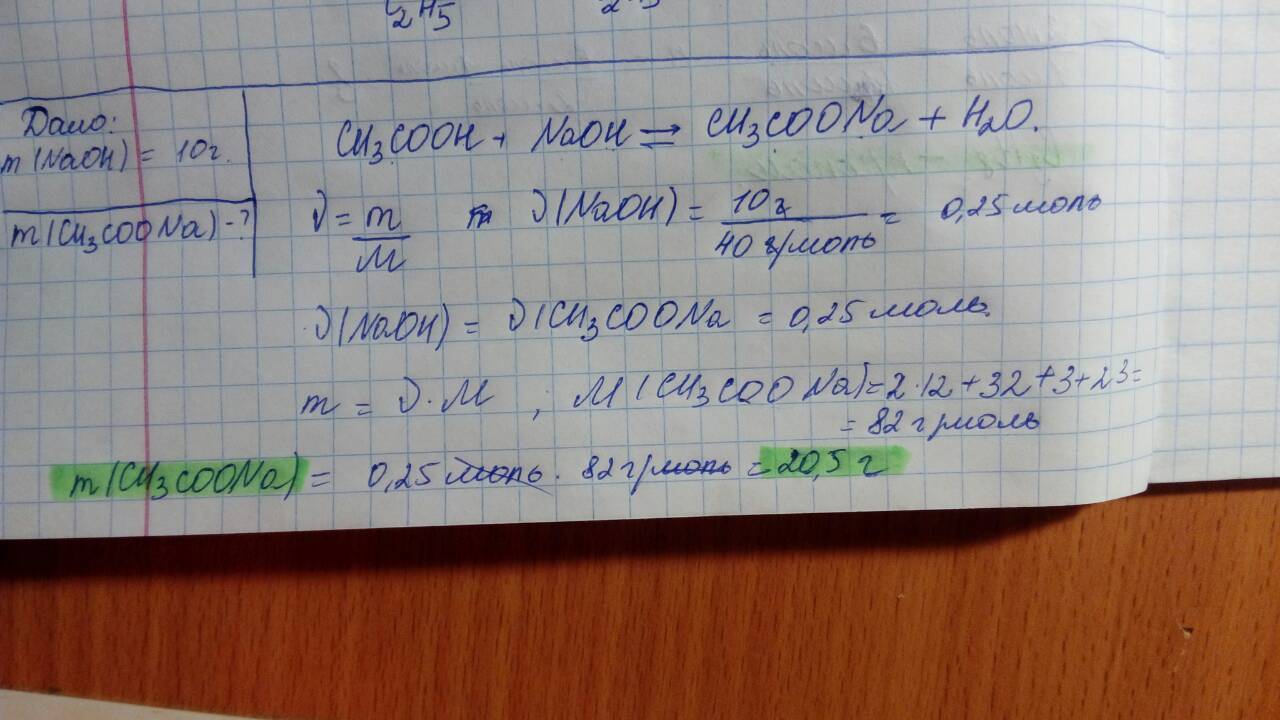 C₂H₅
Дано:
m(NaOH) = 10г.
m(CH₃COONa) - ?
CH₃COOH + NaOH ⇌ CH₃COONa + H₂O.
ν = m/M ν(NaOH) = 10г/40 г/моль = 0,25 моль
ν(NaOH) = ν(CH₃COONa = 0,25 моль.
m = ν·M ; M(CH₃COONa) = 2·12 + 32 + 3 + 23 =
= 82 г/моль
m(CH₃COONa) = 0,25 моль · 82 г/моль = 20,5 г